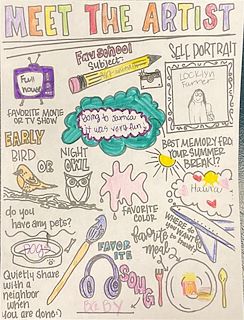 MEET THE ARTIST
Full
House
FAVORITE MOVIE
OR TV SHOW
Fav school
Subject:
SELF PORTRAIT
JOCELYN
EARLY
BIRD
OR
NIGHT
OWL
Going to
it was very fun
BEST MEMORY FROM
YOUR SUMMER
BREAK!?
do you
have any pets?
DOGS
FAVORITE
COLOR
WHERE DO
YOU WANT TO
Favorite
meal?
Quietly share
with a
neighbor
when
you are done:)
FAVOR
ITE
SONG
BABY